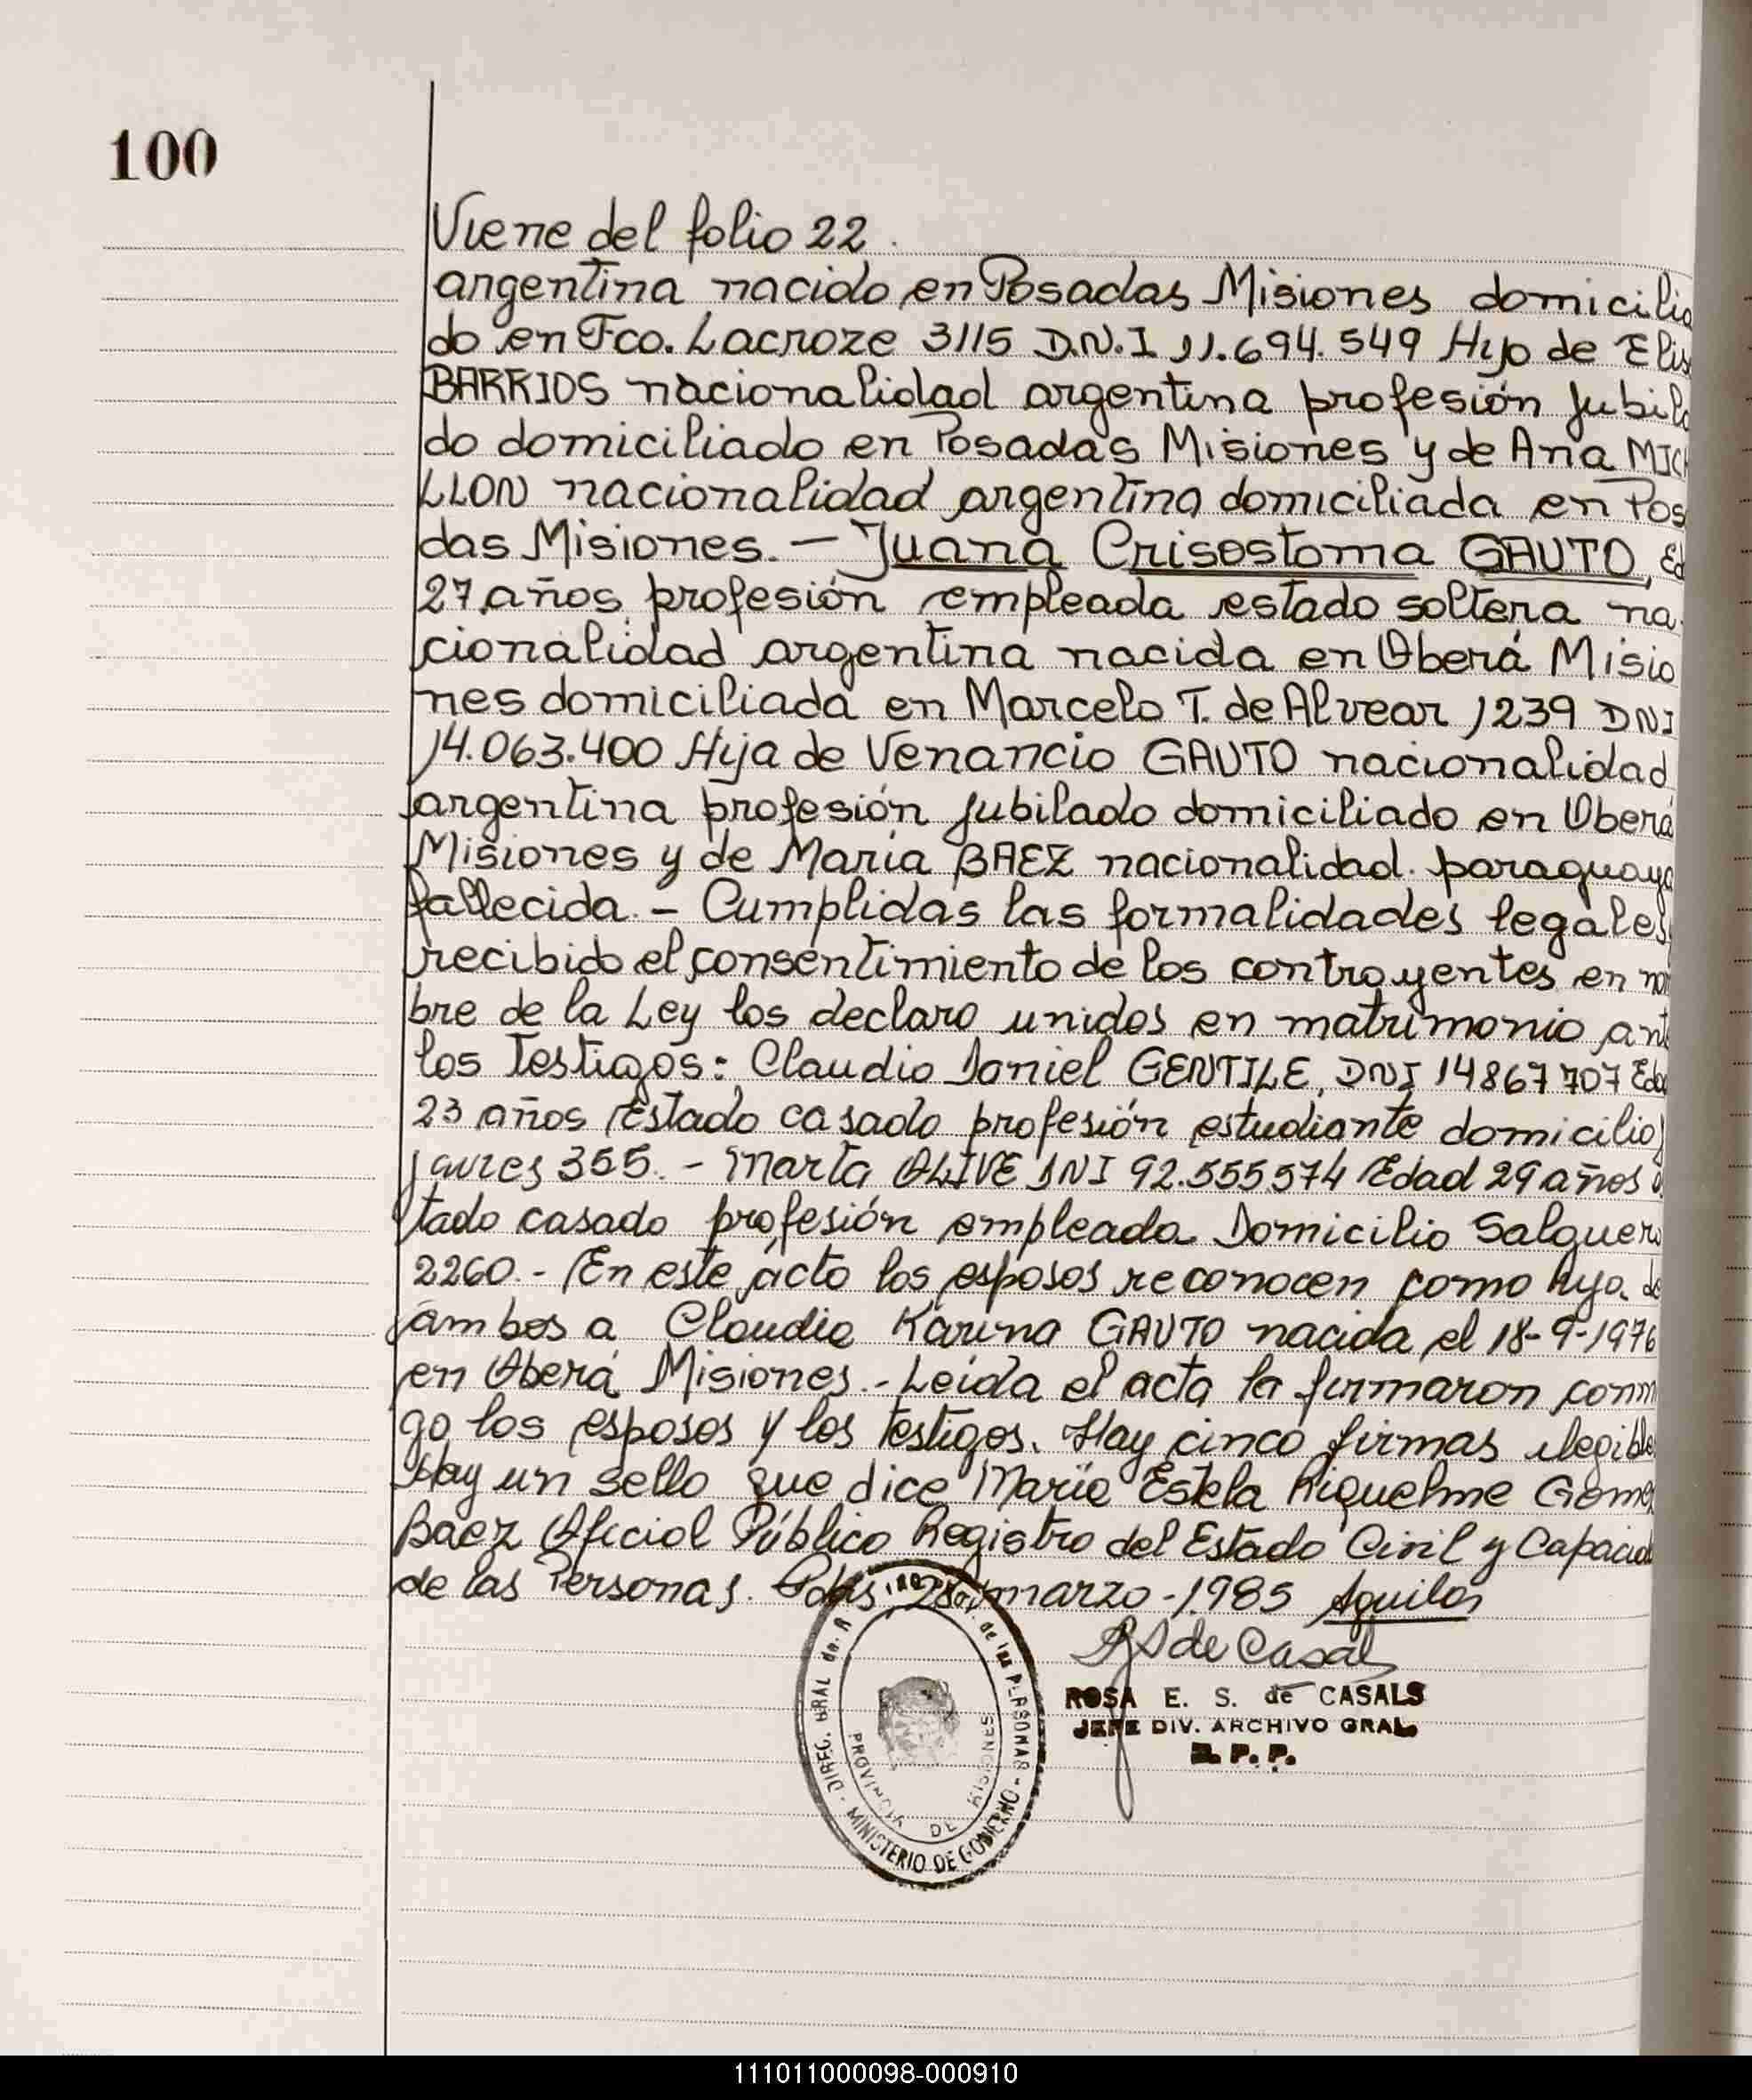 100
Viene del folio 22.
argentina nacido en Posadas Misiones domicilia
do en Fco. Lacroze 3115 D.N.I 11.694.549 Hijo de Elis
BARRIOS nacionalidad argentina profesión Jubila
do domiciliado en Posadas Misiones y de Ana MIC
LLON nacionalidad argentina domiciliada en Pos
das Misiones. — Juana Crisostoma GAUTO, Ed
27 años profesión empleada estado soltera na
cionalidad argentina nacida en Oberá Misio
nes domiciliada en Marcelo T. de Alvear 1239 DNI
14.063.400 Hija de Venancio GAUTO nacionalidad
argentina profesión Jubilado domiciliado en Oberá
Misiones y de María BAEZ nacionalidad. paraguaya
fallecida. - Cumplidas las formalidades legales,
recibido el consentimiento de los contrayentes en no
bre de la Ley los declaro unidos en matrimonio ant
los Testigos: Claudio Daniel GENTILE, DNI 14867707 Eda
23 años Estado casado profesión estudiante domicilio
Jaures 355. - Marta OLIVE DNI 92.555574 Edad 29 años
tado casado profesión empleada Domicilio Salguero
2260. - En este acto los esposos reconocen como hija de
ambos a Claudia Karina GAUTO nacida el 18-9-1976
en Oberá Misiones. - Leída el acta la firmaron conm
go los esposos y los Testigos. Hay cinco firmas ilegible
Hay un sello que dice María Estela Riquelme Gome
Baez Oficial Público Registro del Estado Civil y Capacid
de las Personas. Pdas, 28 marzo - 1985 Aguilar
RS de Casals
ROSA E. S. de CASALS
JEFE DIV. ARCHIVO GRAL.
R. P. P.
DIREC. GRAL de las PERSONAS - MINISTERIO DE GOBIERNO -
PROVINCIA DE MISIONES
111011000098-000910